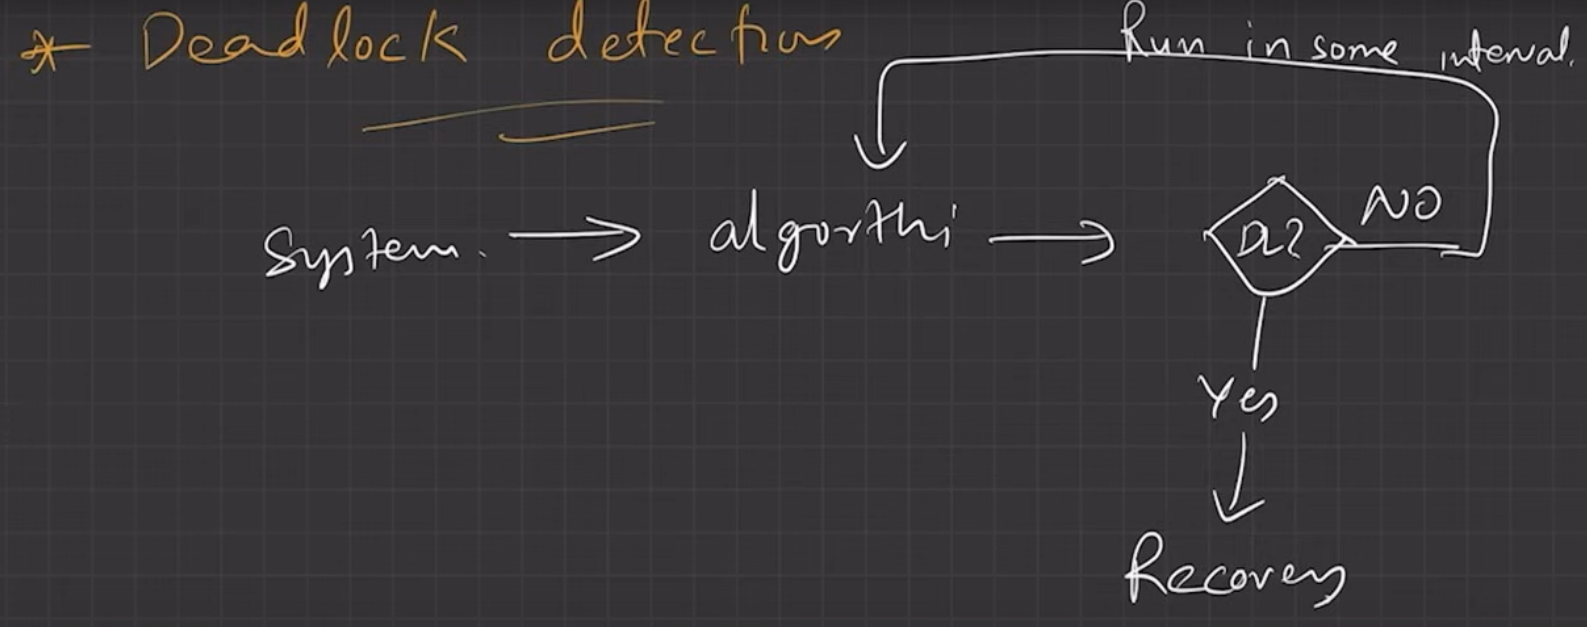 * Deadlock detection
Run in some interval.
System. → algorthi → DL? NO
Yes
Recovery